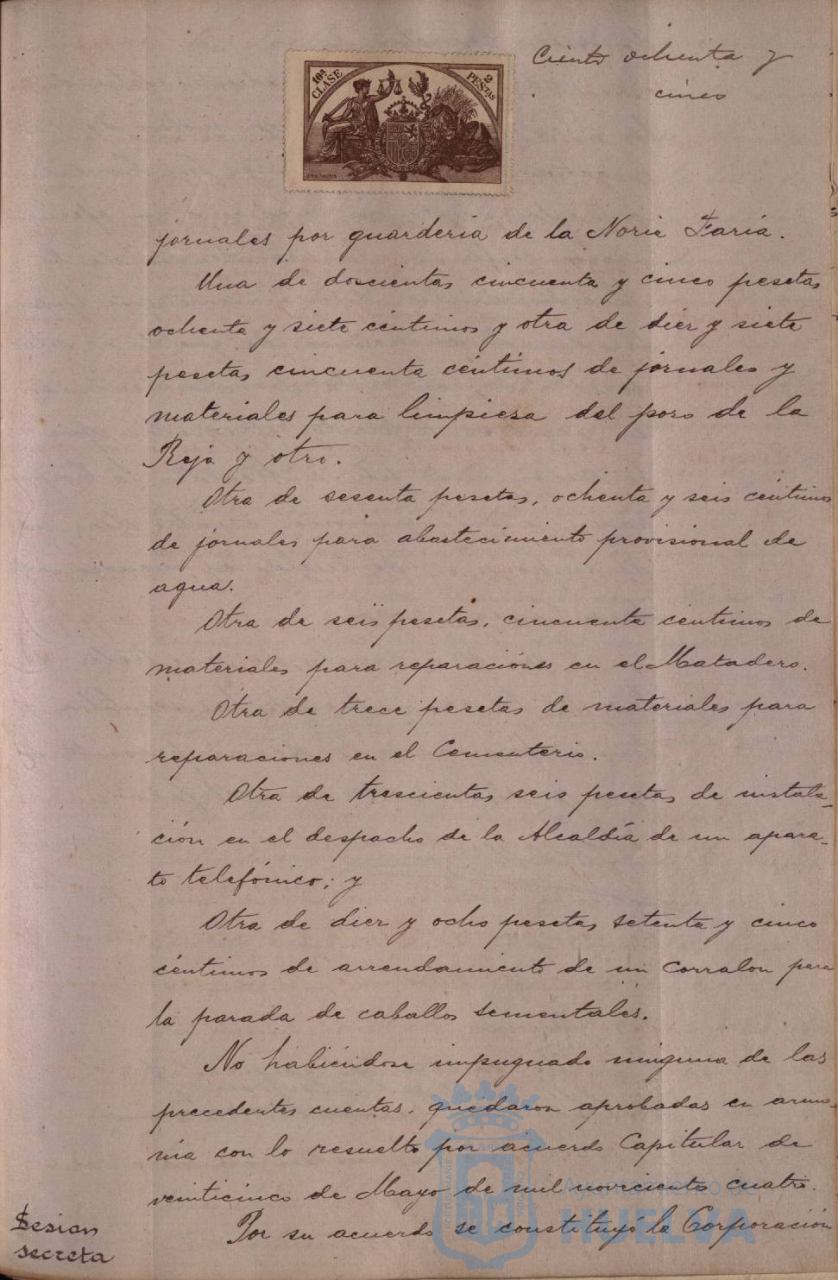 10ª CLASE
2 PESTAS
Ciento ochenta y
cinco
jornales por guarderia de la Norie Faria.
Una de doscientas cincuenta y cinco pesetas
ochenta y siete céntimos y otra de diez y siete
pesetas cincuenta céntimos de jornales y
materiales para limpiesa del poso de la
Reja y otro.
Otra de sesenta pesetas, ochenta y seis céntimos
de jornales para abastecimiento provisional de
agua.
Otra de seis pesetas, cincuenta centimos de
materiales para reparaciones en el Matadero.
Otra de trece pesetas de materiales para
reparaciones en el Cementerio.
Otra de trescientas seis pesetas de instala-
ción en el despacho de la Alcaldía de un apara-
to telefónico; y
Otra de diez y ocho pesetas setenta y cinco
céntimos de arrendamiento de un corralon para
la parada de caballos sementales.
No habiéndose impugnado ninguna de las
precedentes cuentas, quedaron aprobadas en armo-
nia con lo resuelto por acuerdo Capitular de
veinticinco de Mayo de mil novecientos cuatro.
Sesion
secreta
Por su acuerdo se constituyó la Corporación
Ayuntamiento de
HUELVA